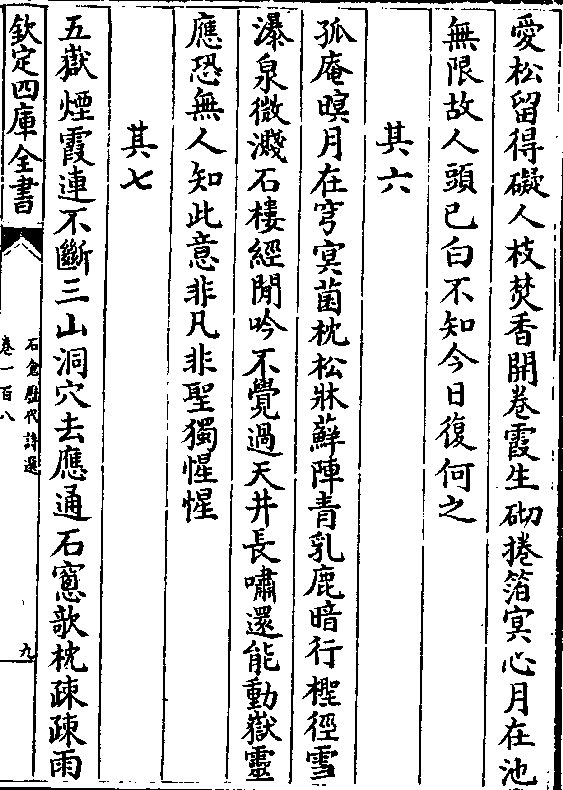 愛松留得礙人枝焚香開卷霞生砌捲箔冥心月在池
無限故人頭已白不知今日復何之
其六
孤庵暝月在穹冥菌枕松牀蘚陣青乳鹿暗行檉徑雪
瀑泉微濺石樓經閒吟不覺過天井長嘯還能動嶽靈
應恐無人知此意非凡非聖獨惺惺
其七
五嶽煙霞連不斷三山洞穴去應通石窻欹枕疎疎雨
欽定四庫全書
石倉歷代詩選
卷一百八
九